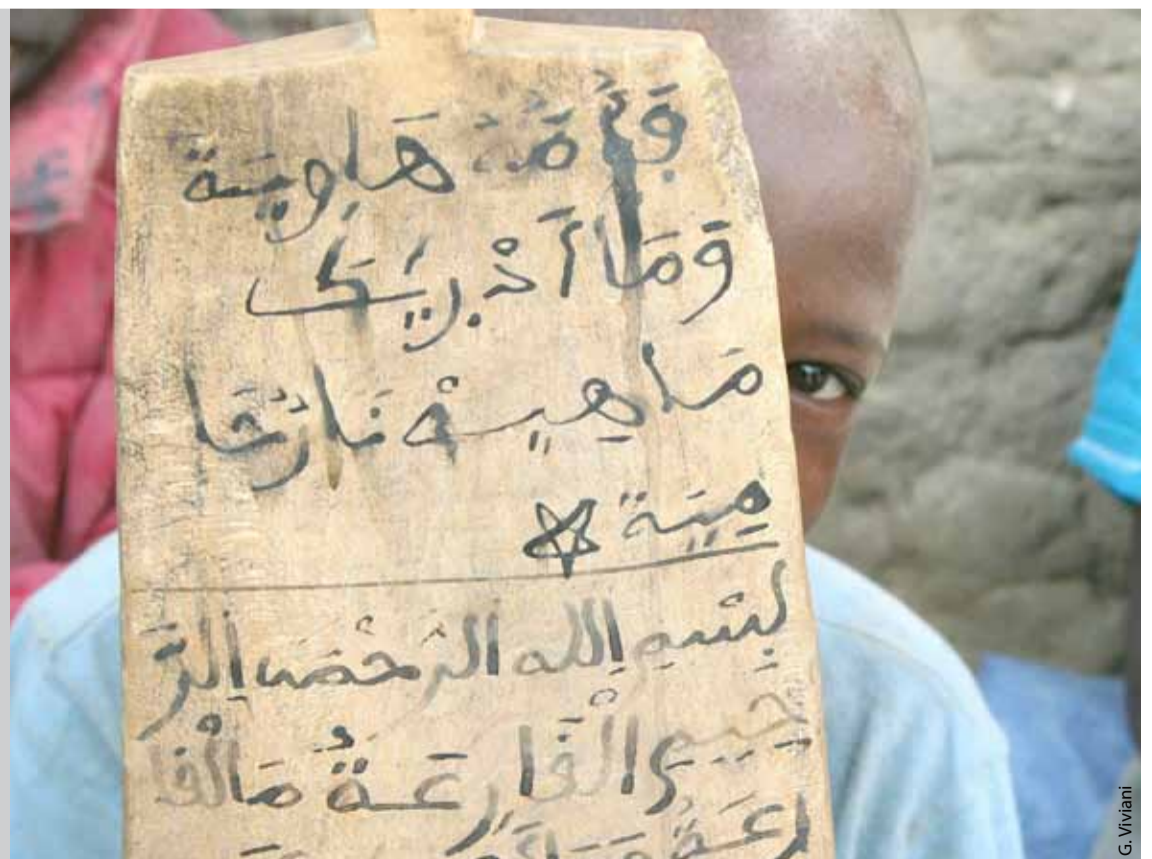 فَأُمُّهُ هَاوِيَةٌ
وَمَا أَدْرِيكَ
مَا هِيَهْ نَارٌ حَا
مِيَةٌ
بِسْمِ اللهِ الرَّحْمَنِ الرَّ
حِيمِ الْقَارِعَةُ مَا الْقَا
رِعَةُ
G. Viviani